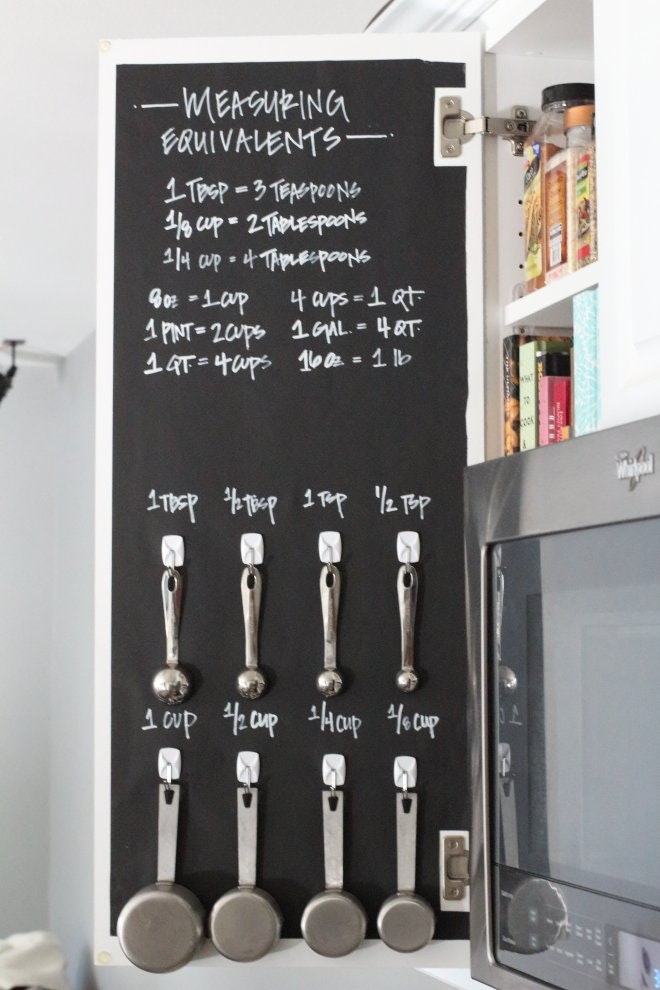 MEASURING
EQUIVALENTS
1 TBSP = 3 TEASPOONS
1/8 CUP = 2 TABLESPOONS
1/4 CUP = 4 TABLESPOONS
8oz = 1 CUP 4 CUPS = 1 QT.
1 PINT = 2 CUPS 1 GAL. = 4 QT.
1 QT. = 4 CUPS 16oz = 1 lb
1 TBSP 1/2 TBSP 1 TSP 1/2 TSP
1 CUP 1/2 CUP 1/4 CUP 1/8 CUP
WHAT
TO
COOK
&
Whirlpool